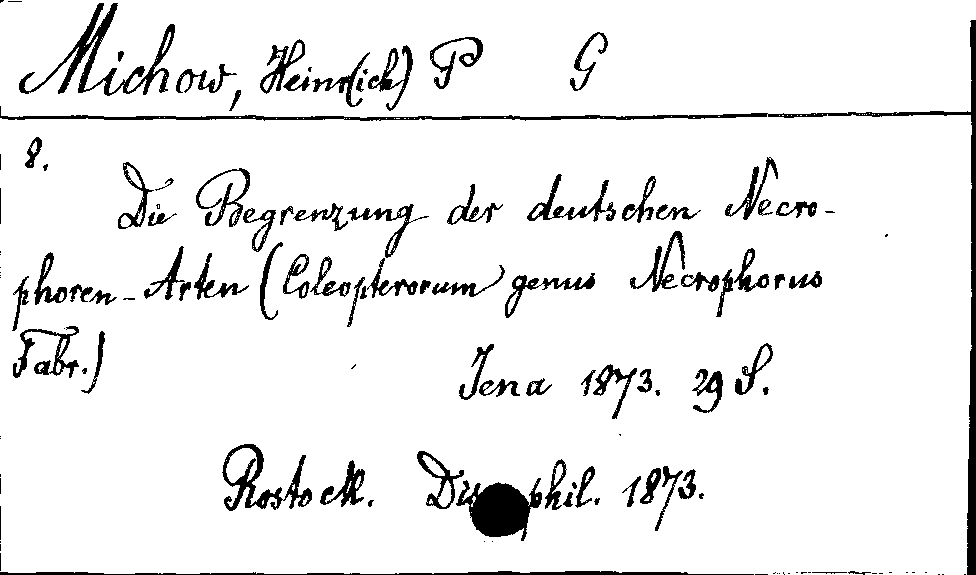 Michow, Hein(rich) P G
8.
Die Begrenzung der deutschen Necro-
phoren-Arten (Coleopterorum genus Necrophorus
Fabr.)
Jena 1873. 29 S.
Rostock. Dis phil. 1873.